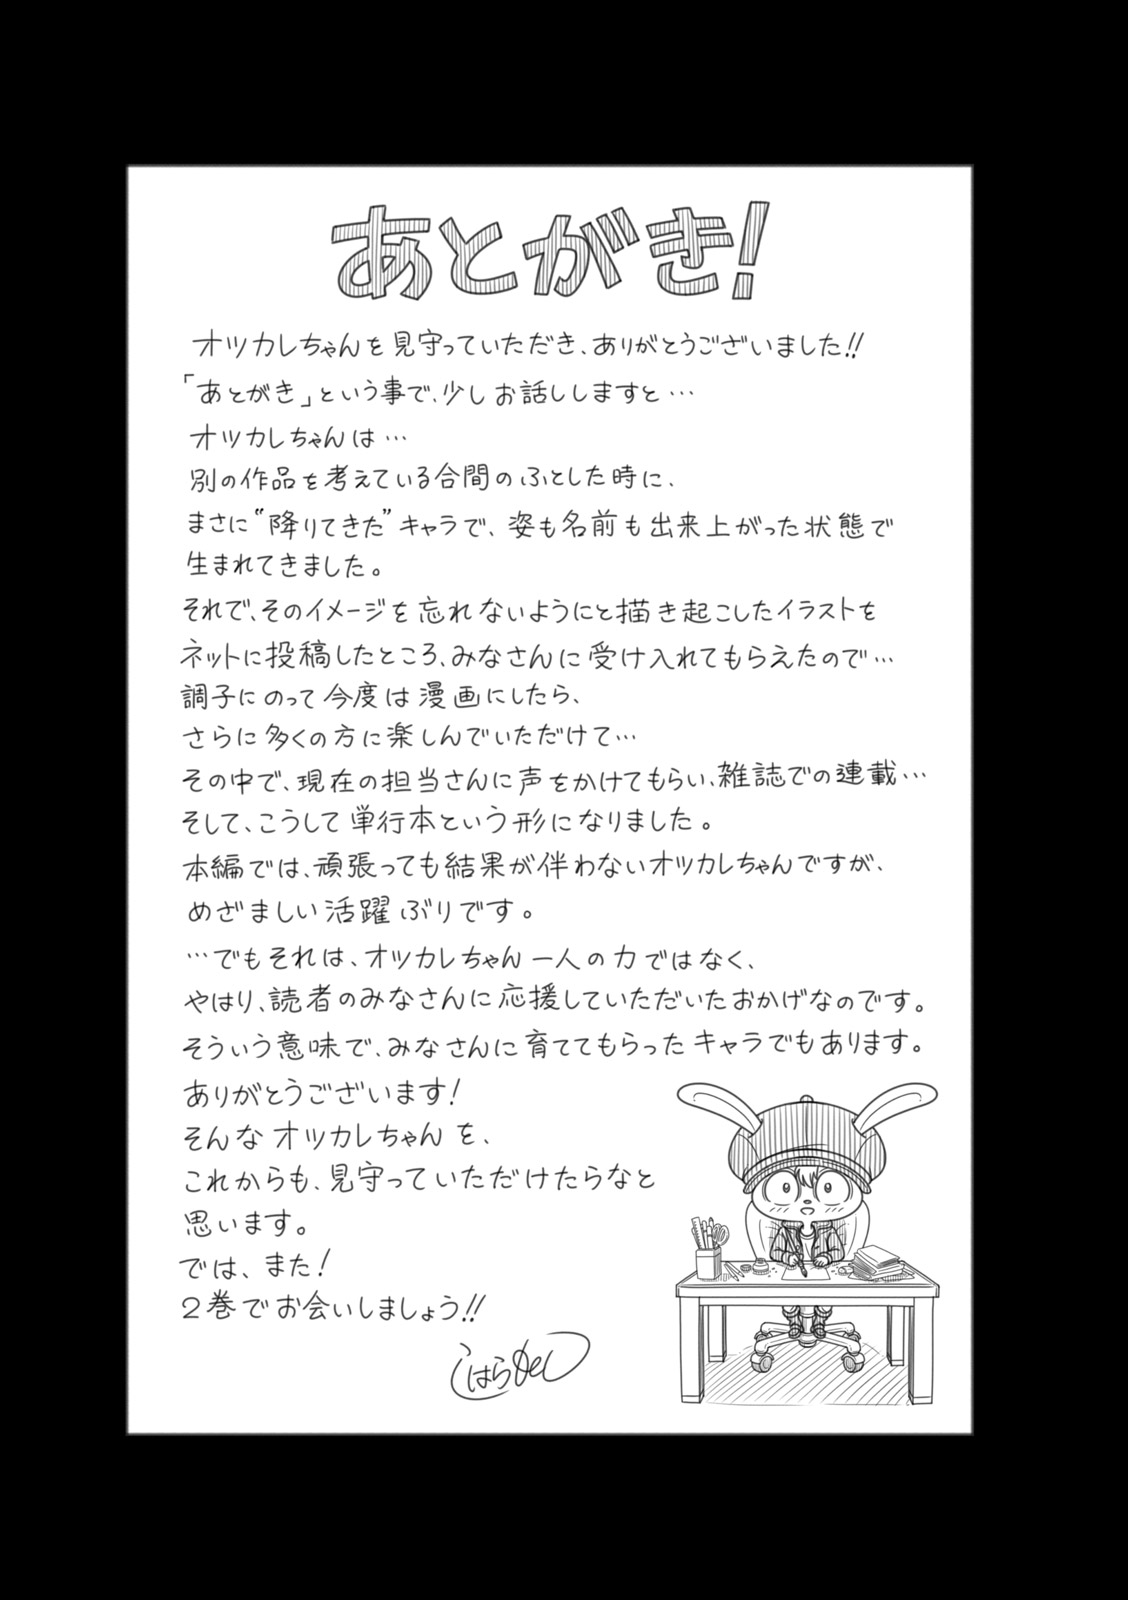 あとがき!
オツカレちゃんを見守っていただき、ありがとうございました!!
「あとがき」という事で、少しお話ししますと…
オツカレちゃんは…
別の作品を考えている合間のふとした時に、
まさに“降りてきた”キャラで、姿も名前も出来上がった状態で
生まれてきました。
それで、そのイメージを忘れないようにと描き起こしたイラストを
ネットに投稿したところ、みなさんに受け入れてもらえたので…
調子にのって今度は漫画にしたら、
さらに多くの方に楽しんでいただけて…
その中で、現在の担当さんに声をかけてもらい、雑誌での連載…
そして、こうして単行本という形になりました。
本編では、頑張っても結果が伴わないオツカレちゃんですが、
めざましい活躍ぶりです。
…でもそれは、オツカレちゃん一人の力ではなく、
やはり、読者のみなさんに応援していただいたおかげなのです。
そういう意味で、みなさんに育ててもらったキャラでもあります。
ありがとうございます!
そんなオツカレちゃんを、
これからも、見守っていただけたらなと
思います。
では、また!
2巻でお会いしましょう!!